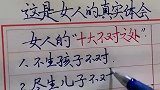 这是女人的真实体会
女人的“十大不对之处”
1.不生孩子不对
2.尽生儿子不对